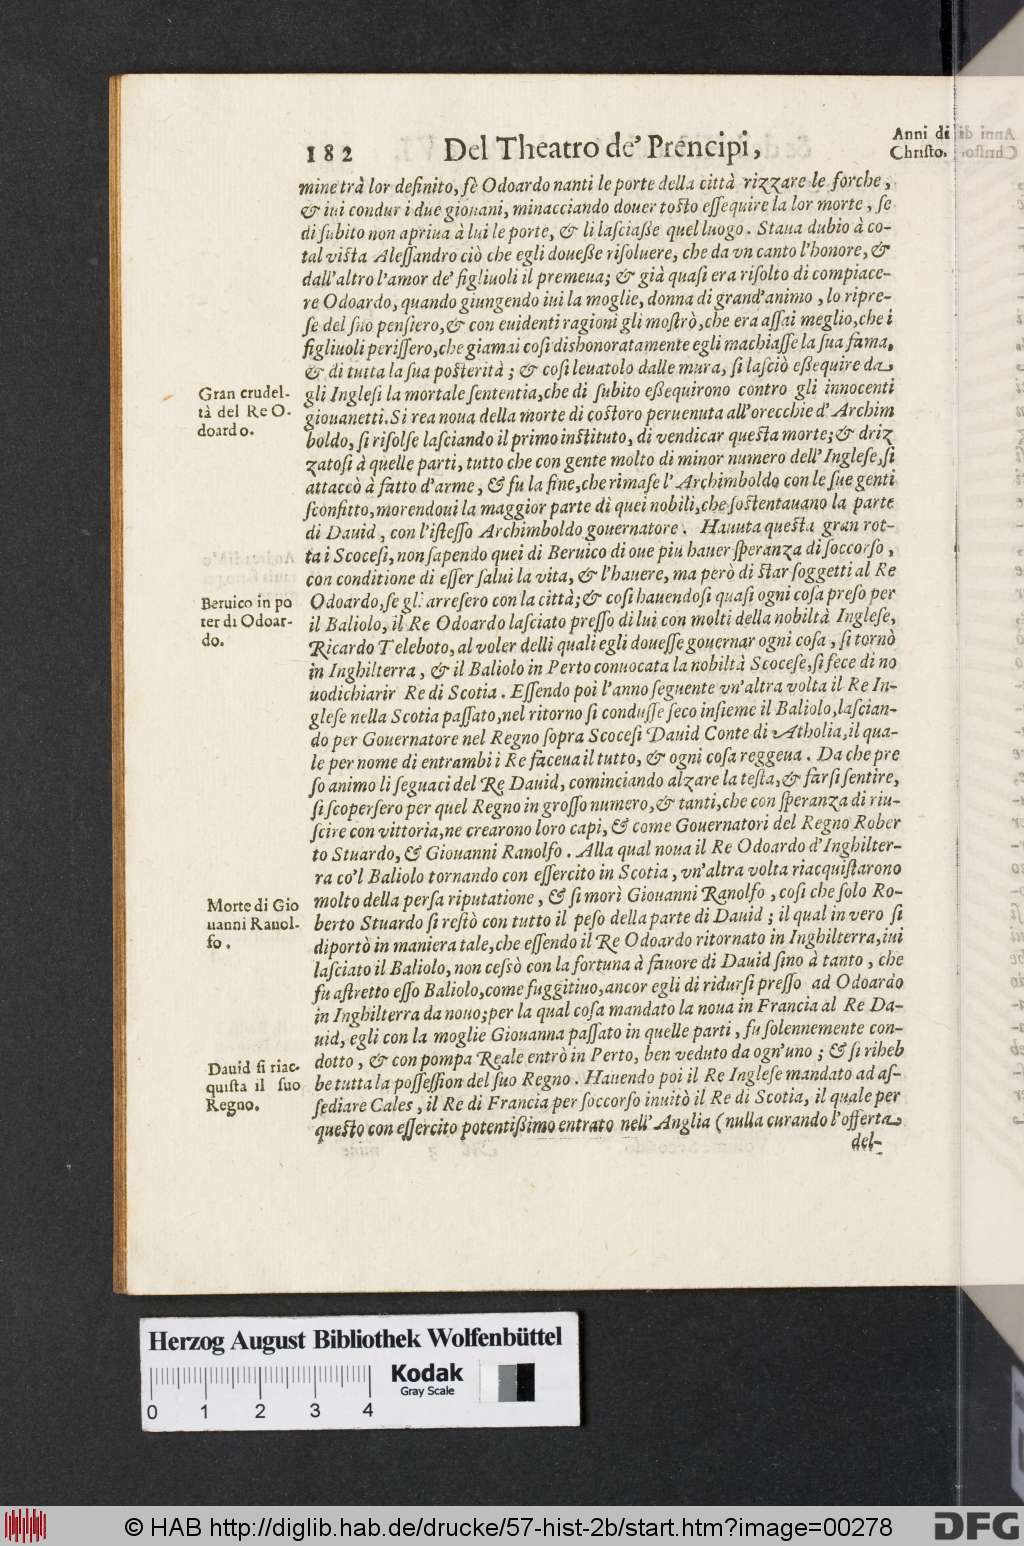 182 Del Theatro de' Prencipi,
Anni di
Christo.
mine trà lor definito, fè Odoardo nanti le porte della città rizzare le forche,
& iui condur i due giouani, minacciando douer tosto essequire la lor morte, se
di subito non apriua à lui le porte, & li lasciaße quel luogo. Staua dubio à co-
tal vista Alessandro ciò che egli doueße risoluere, che da vn canto l'honore, &
dall'altro l'amor de' figliuoli il premeua; & già quasi era risolto di compiace-
re Odoardo, quando giungendo iui la moglie, donna di grand'animo, lo ripre-
se del suo pensiero, & con euidenti ragioni gli mostrò, che era assai meglio, che i
figliuoli perissero, che giamai cosi dishonoratamente egli machiasse la sua fama,
& di tutta la sua posterità; & cosi leuatolo dalle mura, si lasciò eßequire da
gli Inglesi la mortale sententia, che di subito eßequirono contro gli innocenti
giouanetti. Si rea noua della morte di costoro peruenuta all'orecchie d'Archim
boldo, si risolse lasciando il primo instituto, di vendicar questa morte; & driz
zatosi à quelle parti, tutto che con gente molto di minor numero dell'Inglese, si
attaccò à fatto d'arme, & fu la fine, che rimase l'Archimboldo con le sue genti
sconfitto, morendoui la maggior parte di quei nobili, che sostentauano la parte
di Dauid, con l'istesso Archimboldo gouernatore. Hauuta questa gran rot-
ta i Scocesi, non sapendo quei di Beruico di oue più hauer speranza di soccorso,
con conditione di esser salui la vita, & l'hauere, ma però di star soggetti al Re
Odoardo, se gli arresero con la città; & cosi hauendosi quasi ogni cosa preso per
il Baliolo, il Re Odoardo lasciato presso di lui con molti della nobiltà Inglese,
Ricardo Teleboto, al voler delli quali egli douesse gouernar ogni cosa, si tornò
in Inghilterra, & il Baliolo in Perto conuocata la nobiltà Scocese, si fece di no
uo dichiarir Re di Scotia. Essendo poi l'anno seguente vn'altra volta il Re In-
glese nella Scotia passato, nel ritorno si condusse seco insieme il Baliolo, lascian-
do per Gouernatore nel Regno sopra Scocesi Dauid Conte di Atholia, il qua-
le per nome di entrambi i Re faceua il tutto, & ogni cosa reggeua. Da che pre
so animo li seguaci del Re Dauid, cominciando alzare la testa, & farsi sentire,
si scopersero per quel Regno in grosso numero, & tanti, che con speranza di riu-
scire con vittoria, ne crearono loro capi, & come Gouernatori del Regno Rober
to Stuardo, & Giouanni Ranolfo. Alla qual noua il Re Odoardo d'Inghilter-
ra co'l Baliolo tornando con essercito in Scotia, vn'altra volta riacquistarono
molto della persa riputatione, & si morì Giouanni Ranolfo, cosi che solo Ro-
berto Stuardo si restò con tutto il peso della parte di Dauid; il qual in vero si
diportò in maniera tale, che essendo il Re Odoardo ritornato in Inghilterra, iui
lasciato il Baliolo, non ceßò con la fortuna à fauore di Dauid sino à tanto, che
fu astretto esso Baliolo, come fuggitiuo, ancor egli di ridursi presso ad Odoardo
in Inghilterra da nouo; per la qual cosa mandato la noua in Francia al Re Da-
uid, egli con la moglie Giouanna passato in quelle parti, fu solennemente con-
dotto, & con pompa Reale entrò in Perto, ben veduto da ogn'uno; & si riheb
be tutta la possession del suo Regno. Hauendo poi il Re Inglese mandato ad as-
sediare Cales, il Re di Francia per soccorso inuitò il Re di Scotia, il quale per
questo con essercito potentißimo entrato nell'Anglia (nulla curando l'offerta
del-
Gran crudel-
tà del Re O-
doardo.
Beruico in po
ter di Odoar-
do.
Morte di Gio
uanni Ranol-
fo.
Dauid si riac-
quista il suo
Regno.
Herzog August Bibliothek Wolfenbüttel
Kodak
Gray Scale
0 1 2 3 4
© HAB http://diglib.hab.de/drucke/57-hist-2b/start.htm?image=00278
DFG